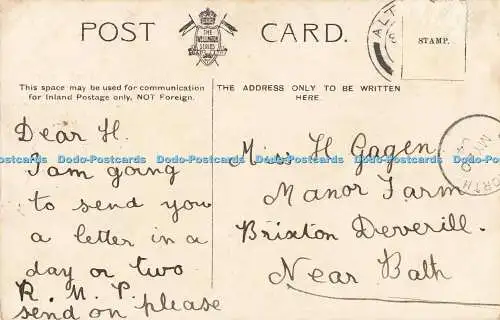 POST CARD.
THE
WELLINGTON
SERIES
STAMP.
This space may be used for communication
for Inland Postage only, NOT Foreign.
THE ADDRESS ONLY TO BE WRITTEN
HERE.
Dear H.
I am going
to send you
a letter in a
day or two
R. M. P.
send on please
Miss H Gagen
Manor Farm
Brixton Deverill.
Near Bath
ALT
Dodo-Postcards Dodo-Postcards Dodo-Postcards Dodo-Postcards Dodo-Postcards Dodo-Postcards